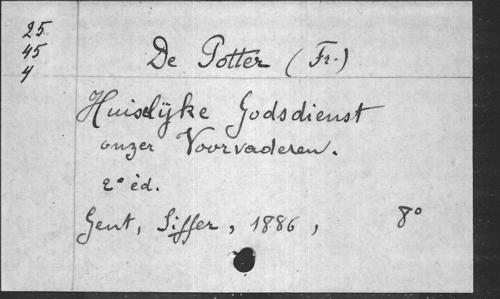 25
45
4
De Potter (Fr.)
Huiselijke Godsdienst
onzer Voorvaderen.
2e éd.
Gent, Siffer, 1886, 8°